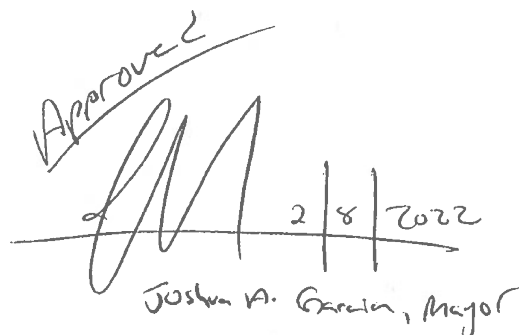 Approved
2/8/2022
Joshua A. Garcia, Mayor